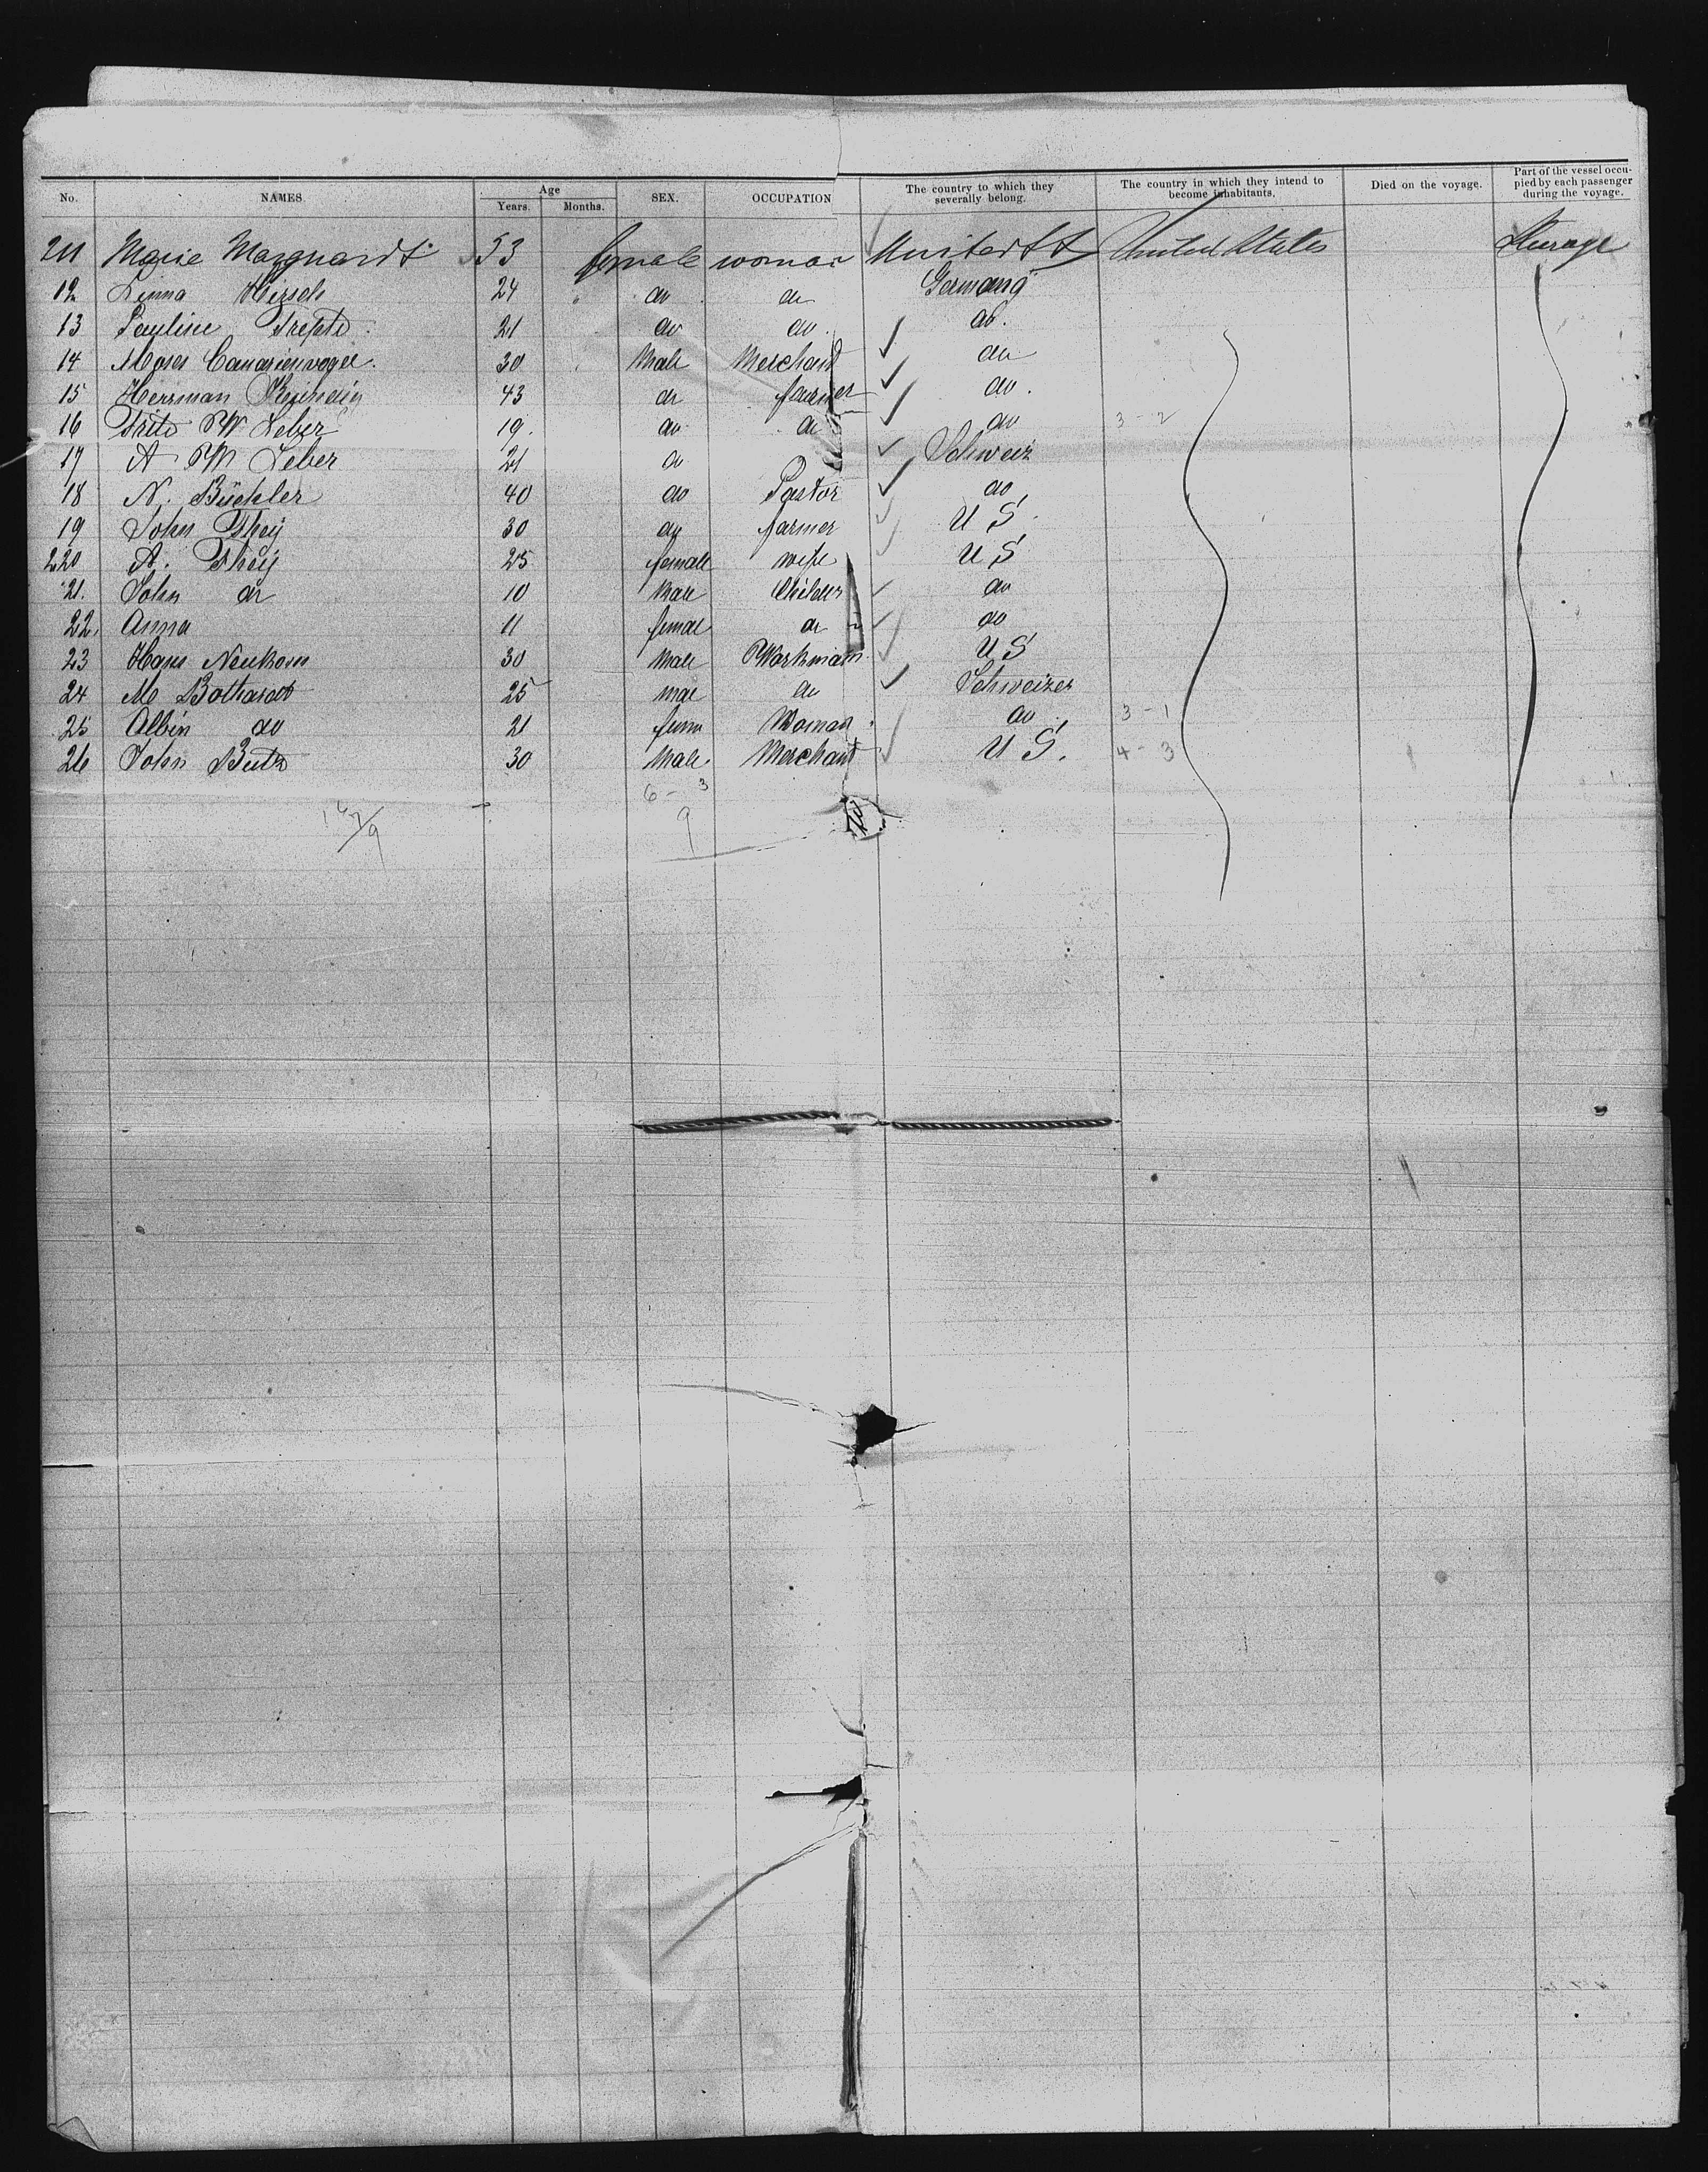 No. NAMES. Age Years. Months. SEX. OCCUPATION The country to which they severally belong. The country in which they intend to become inhabitants. Died on the voyage. Part of the vessel occupied by each passenger during the voyage.
211 Marie Marquardt 53 female woman United St United States Steerage
12 Hirsch 24 do do Germany
13 Pauline 21 do do do.
14 Moses Canarienvogel. 30 Male Merchant do
15 Herrman 43 do farmer do.
16 Fritz W. Leber 19. do do do 3-2
17 A W Leber 21 do Schweiz
18 N. Büchler 40 do Pastor do
19 John 30 do farmer U S.
220 A. 25 female wife U S
21. John do 10 Male do
22. Anna 11 do do
23 Hans Neukom 30 Male Workmann U S
24 M 25 do Schweizer
25 Albin do 21 Woman do 3-1
26 John 30 Male. Merchant U S. 4-3
6-3
9